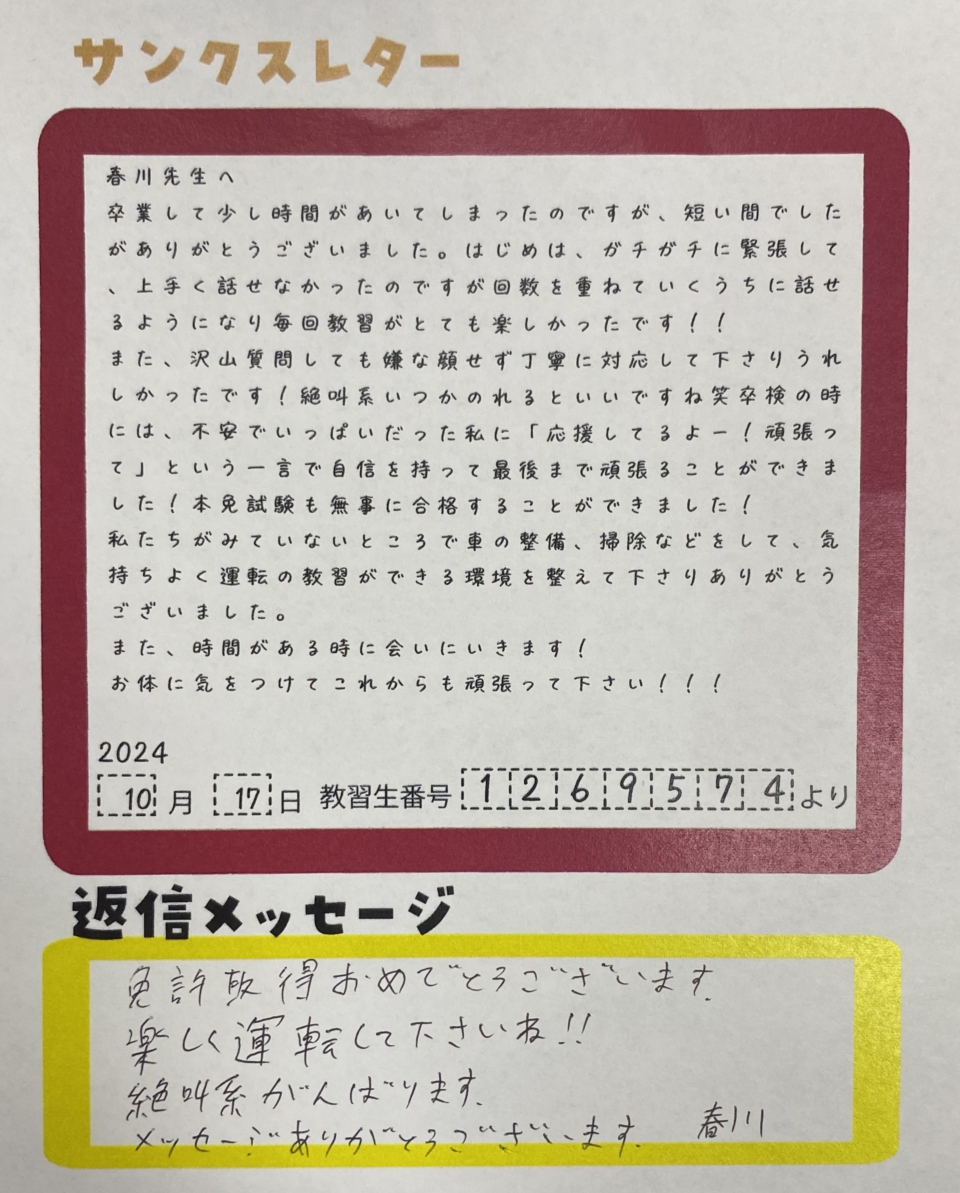 サンクスレター
春川先生へ
卒業して少し時間があいてしまったのですが、短い間でした
がありがとうございました。はじめは、ガチガチに緊張して
、上手く話せなかったのですが回数を重ねていくうちに話せ
るようになり毎回教習がとても楽しかったです！！
また、沢山質問しても嫌な顔せず丁寧に対応して下さりうれ
しかったです！絶叫系いつかのれるといいですね笑卒検の時
には、不安でいっぱいだった私に「応援してるよー！頑張っ
て」という一言で自信を持って最後まで頑張ることができま
した！本免試験も無事に合格することができました！
私たちがみていないところで車の整備、掃除などをして、気
持ちよく運転の教習ができる環境を整えて下さりありがとう
ございました。
また、時間がある時に会いにいきます！
お体に気をつけてこれからも頑張って下さい！！！
2024
10月 17日 教習生番号 1269574より
返信メッセージ
免許取得おめでとうございます。
楽しく運転して下さいね!!
絶叫系がんばります。
メッセージありがとうございます。 春川